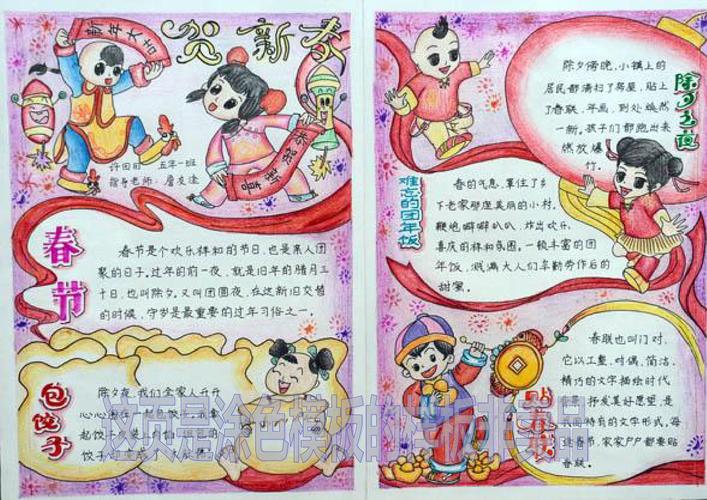 贺新春
新年大吉
恭贺新喜
许田田 五年一班
指导老师:詹友连
春节
春节是个欢乐祥和的节日,也是亲人团
聚的日子。过年的前一夜,就是旧年的腊月三
十日,也叫除夕。又叫团圆夜,在这新旧交替
的时候,守岁是最重要的过年习俗之一。
包饺子
除夕夜,我们全家人开开
心心坐在一起包饺子
除夕之夜
除夕傍晚,小镇上的
居民都清扫了房屋,贴上
了春联,年画,到处焕然
一新。孩子们都跑出来
燃放爆
竹。
难忘的团年饭
春的气息,笼住了乡
下老家那座美丽的小村。
鞭炮噼噼叭叭,炸出欢乐、
喜庆的祥和氛围。一顿丰富的团
年饭,溅满大人们辛勤劳作后的
甜蜜。
贴春联
春联也叫门对,
它以工整、对偶、简洁、
精巧的文字描绘时代
背景,抒发美好愿望,是
我国特有的文学形式。每
逢春节,家家户户都要贴
春联。
这页是涂色模板的样板非卖品